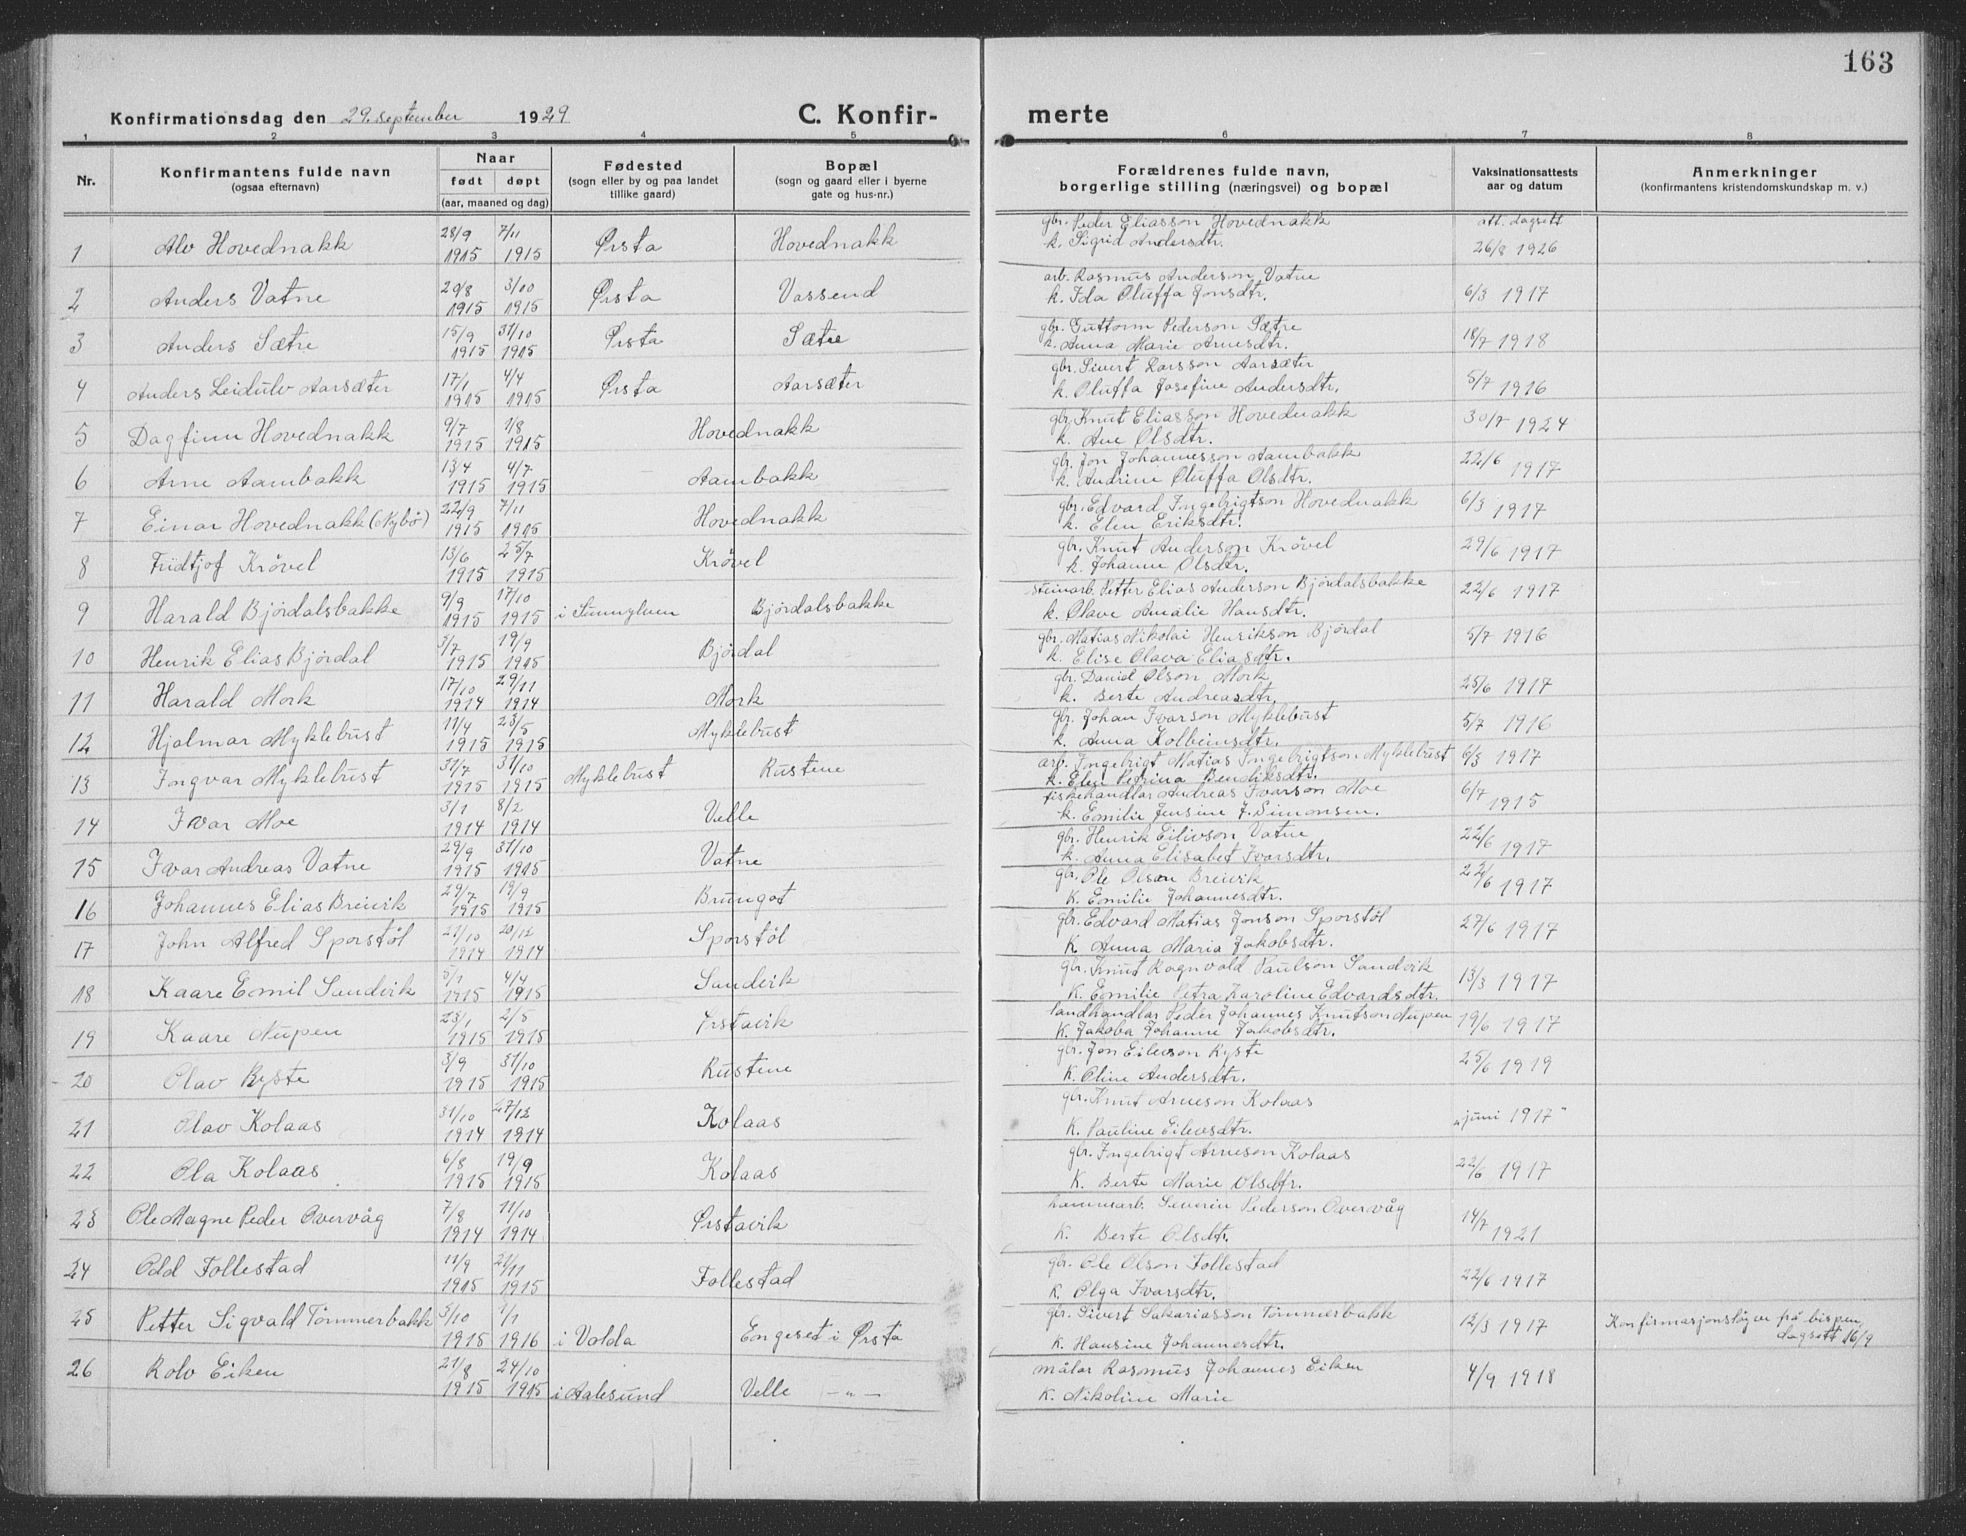 163
Konfirmationsdag den 29. september 1929
C. Konfir-
merte
1 2 3 4 5 6 7 8
Nr.
Konfirmantens fulde navn
(ogsaa efternavn)
Naar
født døpt
(aar, maaned og dag)
Fødested
(sogn eller by og paa landet
tillike gaard)
Bopæl
(sogn og gaard eller i byerne
gate og hus-nr.)
Forældrenes fulde navn,
borgerlige stilling (næringsvei) og bopæl
Vaksinationsattests
aar og datum
Anmerkninger
(konfirmantens kristendomskundskap m. v.)
1 Alv Hovednakk 28/9 1915 7/11 1915 Ørsta Hovednakk gbr. Peder Eliasson Hovednakk att. dagsett
k. Sigrid Andersdtr. 26/8 1926
2 Anders Vatne 29/8 1915 3/10 1915 Ørsta Vassend arb. Rasmus Anderson Vatne
k. Ida Oluffa Jonsdtr. 6/3 1917
3 Anders Sætre 15/9 1915 31/10 1915 Ørsta Sætre gbr. Guttorm Pederson Sætre
k. Anna Marie Arnesdtr. 18/7 1918
4 Anders Leidulv Aarsæter 17/1 1915 4/4 1915 Ørsta Aarsæter gbr. Sivert Larsson Aarsæter
k. Oluffa Josefine Andersdtr. 5/7 1916
5 Dagfinn Hovednakk 9/7 1915 1/8 1915 Hovednakk gbr. Knut Eliasson Hovednakk
k. Ane Olsdtr. 30/7 1924
6 Arne Aambakk 13/4 1915 4/7 1915 Aambakk gbr. Jon Johannesson Aambakk
k. Andrine Oluffa Olsdtr. 22/6 1917
7 Einar Hovednakk (Nybø) 22/9 1915 7/11 1915 Hovednakk gbr. Edvard Ingebrigtson Hovednakk
k. Elen Eriksdtr. 6/3 1917
8 Fridtjof Krøvel 13/6 1915 25/7 1915 Krøvel gbr. Knut Anderson Krøvel
k. Johanne Olsdtr. 29/6 1917
9 Harald Bjørdalsbakke 9/9 1915 17/10 1915 i Sunnylven Bjørdalsbakke steinarb. Petter Elias Anderson Bjørdalsbakke
k. Olave Amalie Hansdtr. 22/6 1917
10 Henrik Elias Bjørdal 3/7 1915 19/9 1915 Bjørdal gbr. Matias Nikolai Henrikson Bjørdal
k. Elise Olava Eliasdtr. 5/7 1916
11 Harald Mork 17/10 1914 29/11 1914 Mork gbr. Daniel Olson Mork
k. Berte Andreasdtr. 25/6 1917
12 Hjalmar Myklebust 11/4 1915 23/5 1915 Myklebust gbr. Johan Ivarson Myklebust
k. Anna Kolbeinsdtr. 5/7 1916
13 Ingvar Myklebust 31/7 1915 31/10 1915 Myklebust Rustene arb. Ingebrigt Matias Ingebrigtson Myklebust
k. Elen Petrina Bendiksdtr. 6/3 1917
14 Ivar Moe 3/1 1914 8/2 1914 Velle fiskehandlar Andreas Ivarson Moe
k. Emilie Jensine J. Simonsen. 6/7 1915
15 Ivar Andreas Vatne 29/9 1915 31/10 1915 Vatne gbr. Henrik Eilivson Vatne
k. Anna Elisabet Ivarsdtr. 22/6 1917
16 Johannes Elias Breivik 29/7 1915 19/9 1915 Brungot gbr. Ole Olson Breivik
K. Emilie Johannesdtr. 22/6 1917
17 John Alfred Sporstøl 21/10 1914 20/12 1914 Sporstøl gbr. Edvard Matias Jonson Sporstøl
K. Anna Maria Jakobsdtr. 27/6 1917
18 Kaare Emil Sandvik 5/1 1915 4/4 1915 Sandvik gbr. Knut Ragnvald Paulson Sandvik
K. Emilie Petra Karoline Edvardsdtr. 13/3 1917
19 Kaare Nupen 23/1 1915 2/5 1915 Ørstavik landhandlar Peder Johannes Knutson Nupen
K. Jakoba Johanne Jakobsdtr. 19/6 1917
20 Olav Ryste 3/9 1915 31/10 1915 Rustene gbr. Jon Eilevson Ryste
K. Oline Andersdtr. 25/6 1919
21 Olav Kolaas 31/10 1914 27/12 1914 Kolaas gbr. Knut Arneson Kolaas
K. Pauline Eilevsdtr. "juni 1917"
22 Ola Kolaas 6/8 1915 19/9 1915 Kolaas gbr. Ingebrigt Arneson Kolaas
K. Berte Marie Olsdtr. 22/6 1917
23 Ole Magne Peder Overvåg 7/8 1914 11/10 1914 Ørstavik hammarb. Severin Pederson Overvåg
K. Berte Olsdtr. 14/7 1921
24 Odd Follestad 11/9 1915 21/11 1915 Follestad gbr. Ole Olson Follestad
K. Olga Ivarsdtr. 22/6 1917
25 Petter Sigvald Tømmerbakk 3/10 1915 1/1 1916 i Volda Engeset i Ørsta gbr. Sivert Sakariasson Tømmerbakk
K. Hansine Johannesdtr. 12/3 1917 Konfirmasjonsløyve frå bispen,
dagsett 16/9
26 Rolv Eiken 21/8 1915 24/10 1915 i Aalesund Velle -"- målar Rasmus Johannes Eiken
K. Nikoline Marie 4/9 1918